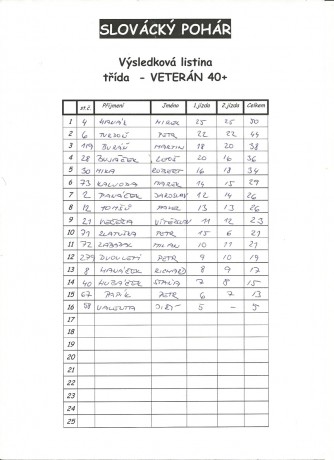 SLOVÁCKÝ POHÁR
Výsledková listina
třída - VETERÁN 40+
st.č. Příjmení Jméno 1.jízda 2.jízda Celkem
1 4 MIREK 25 25 50
2 6 PETR 22 22 44
3 119 MARTIN 18 20 38
4 28 20 16 36
5 30 MIKA ROBERT 16 18 34
6 73 KALVODA MAREK 14 15 29
7 2 JAROSLAV 12 14 26
8 12 13 13 26
9 21 11 12 23
10 71 ZLATUŠKA PETR 15 6 21
11 72 MILAN 10 11 21
12 279 PETR 9 10 19
13 8 RICHARD 8 9 17
14 40 7 8 15
15 67 PETR 6 7 13
16 VALENTA JIŘÍ 5 - 5
17
18
19
20
21
22
23
24
25